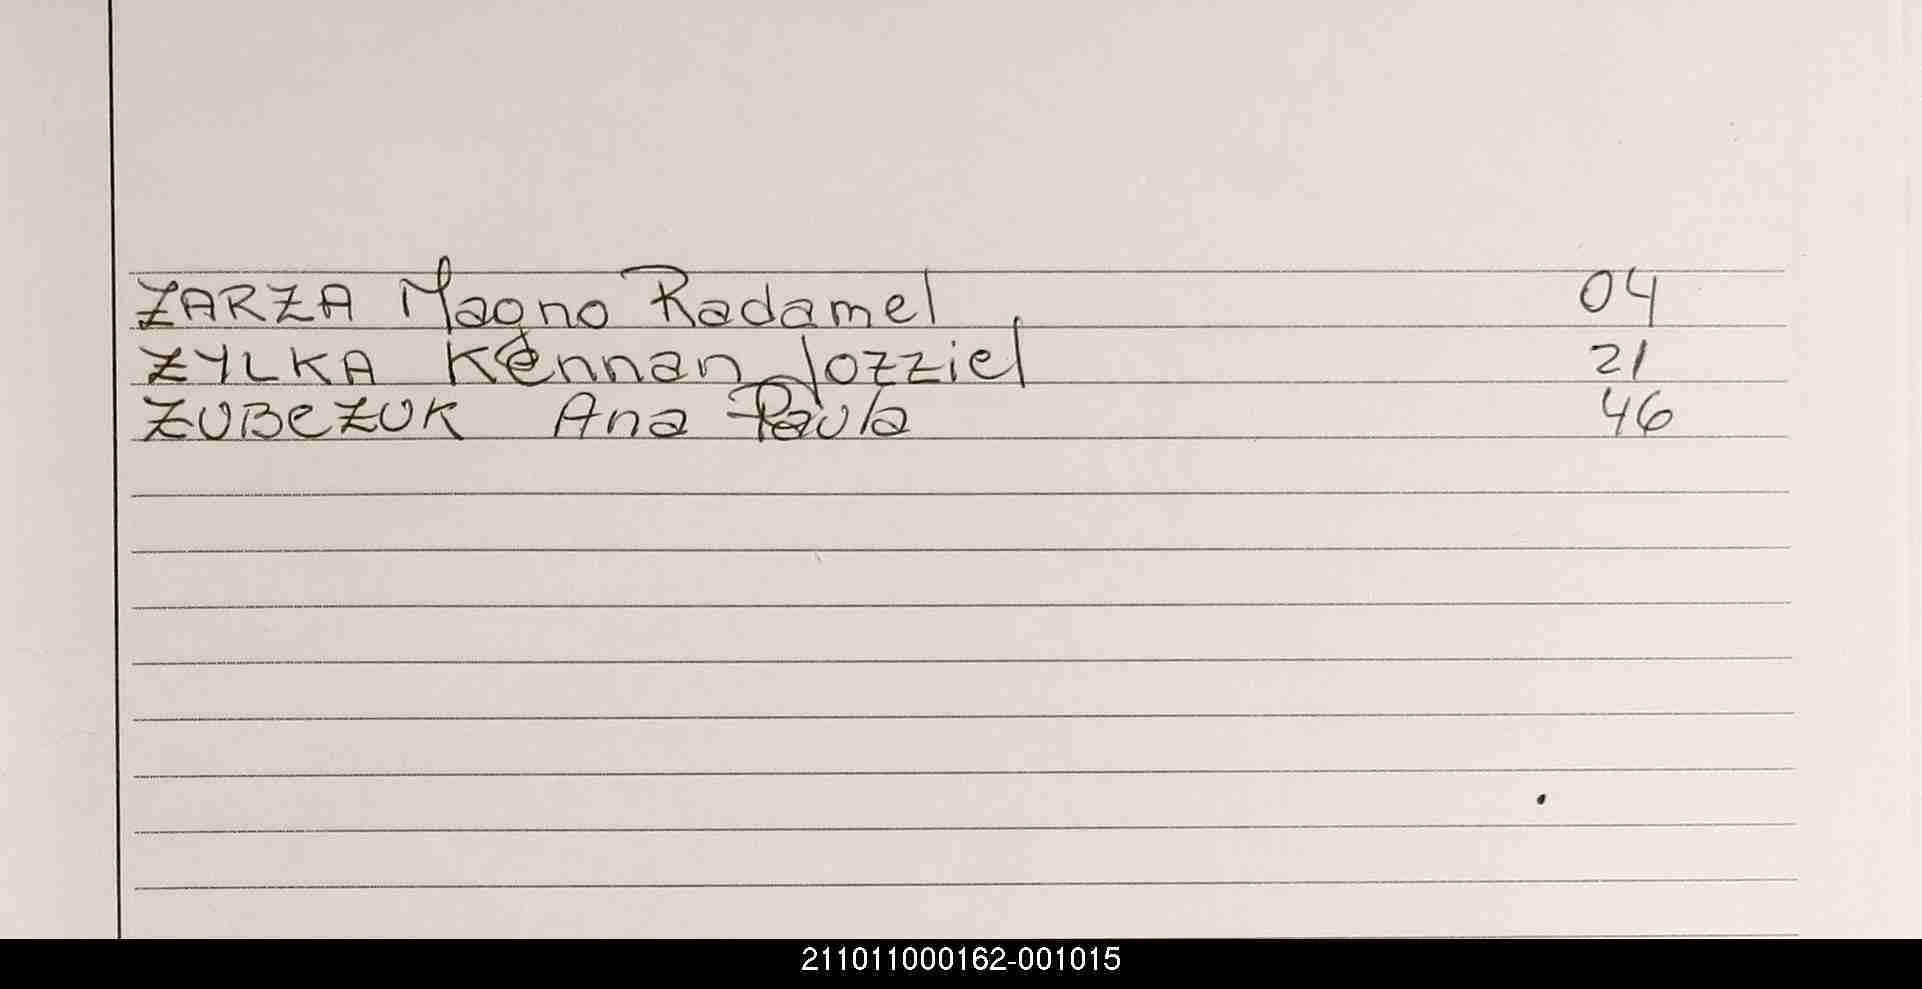 ZARZA Magno Radamel 04
ZYLKA Kennan Jozziel 21
ZUBCZUK Ana Paula 46
211011000162-001015